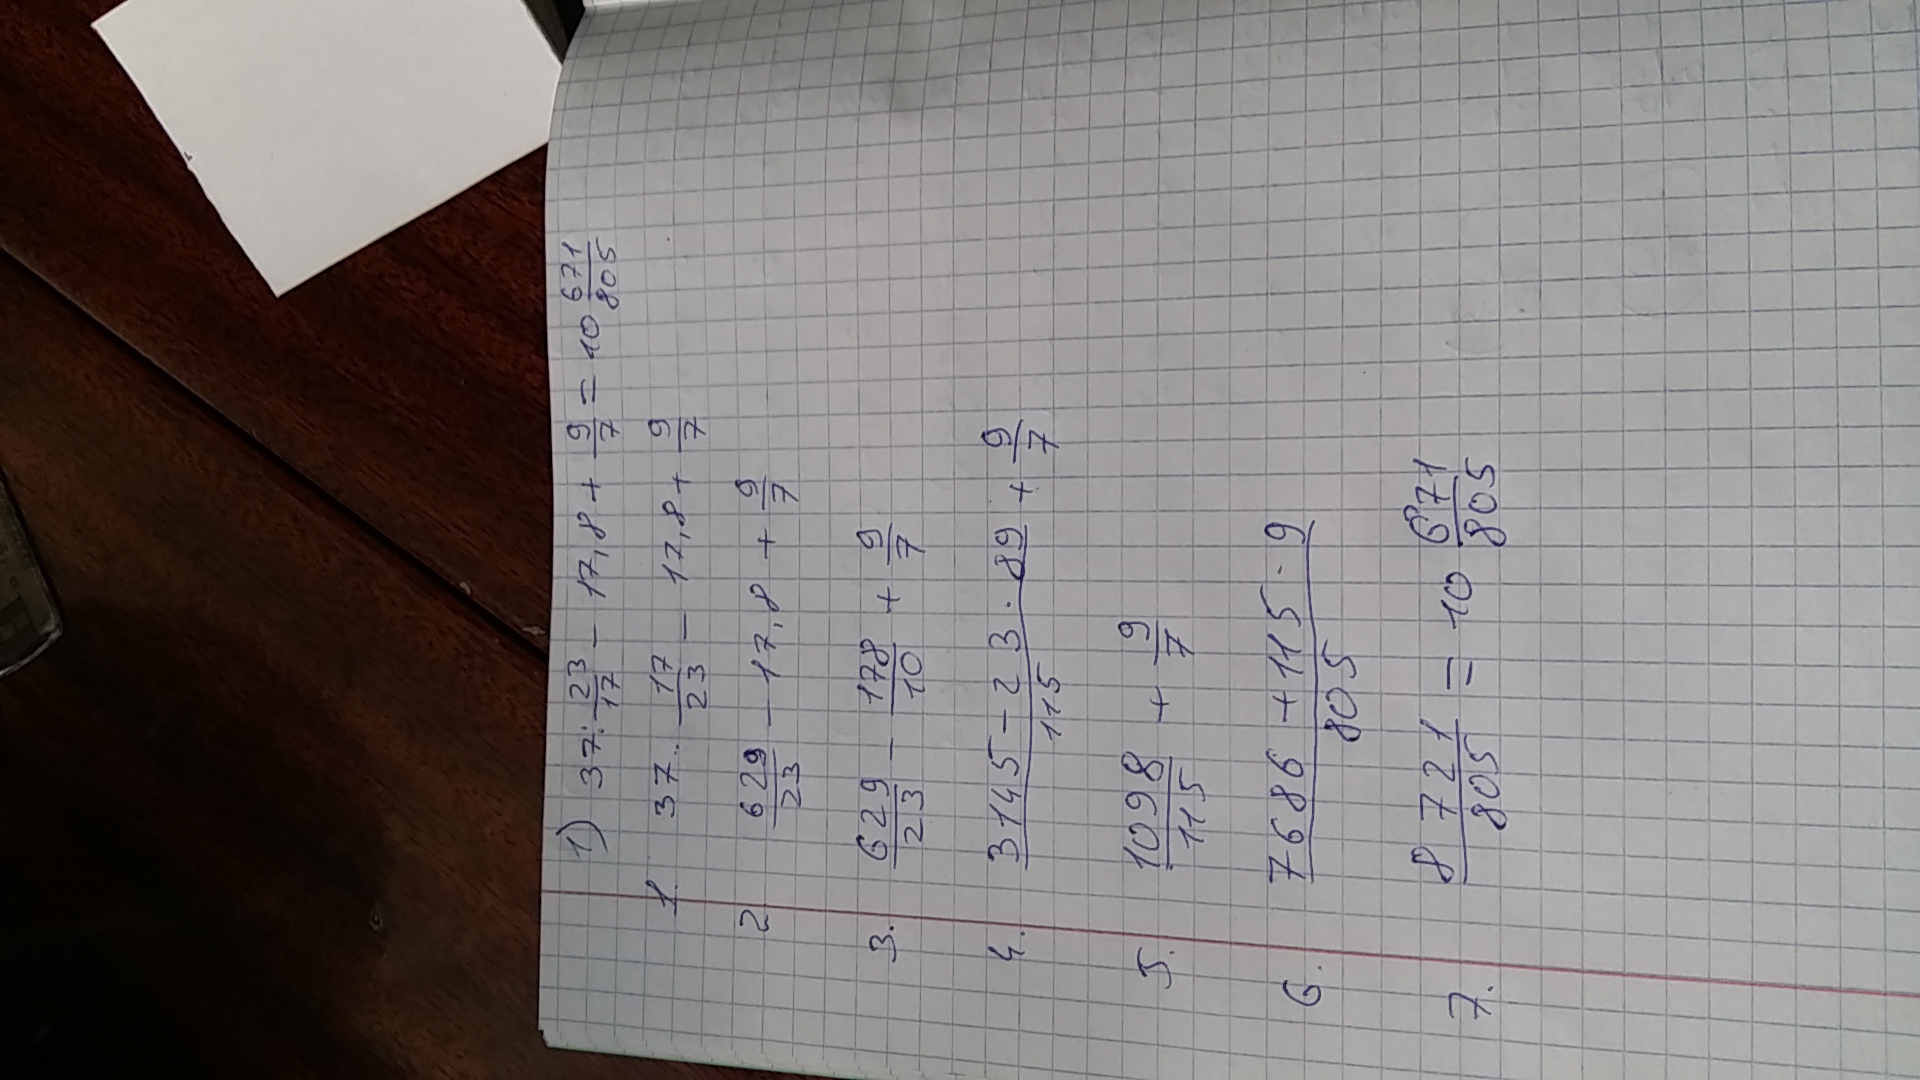 1) 37 : 23/17 - 17,8 + 9/7 = 10 671/805
1. 37 · 17/23 - 17,8 + 9/7
2 629/23 - 17,8 + 9/7
3. 629/23 - 178/10 + 9/7
4. 3145 - 23 · 89/115 + 9/7
5. 1098/115 + 9/7
6. 7686 + 115 · 9/805
7. 8721/805 = 10 671/805